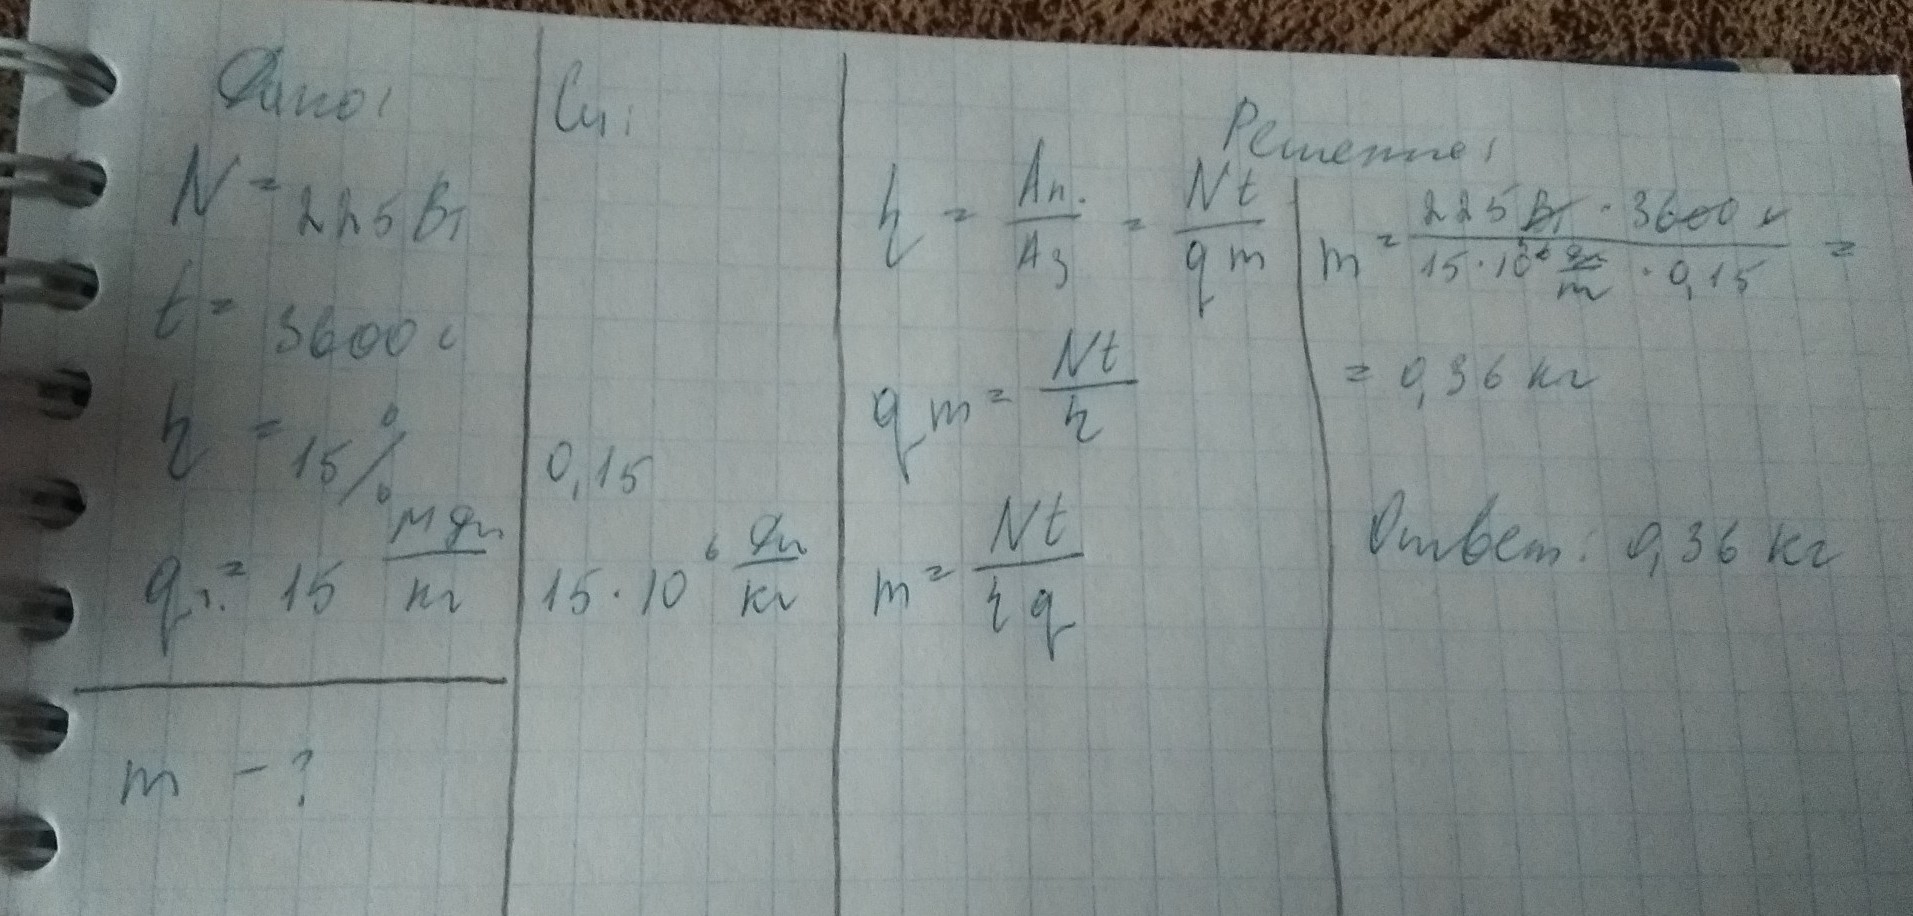 Дано:
N = 225 Вт
t = 3600 с
η = 15%
q = 15 МДж/кг
m - ?
Си:
0,15
15 · 10⁶ Дж/кг
Решение:
η = Aп./Aз = Nt/qm
qm = Nt/η
m = Nt/ηq
m = 225 Вт · 3600 с / 15 · 10⁶ Дж/m · 0,15 =
= 0,36 кг
Ответ: 0,36 кг